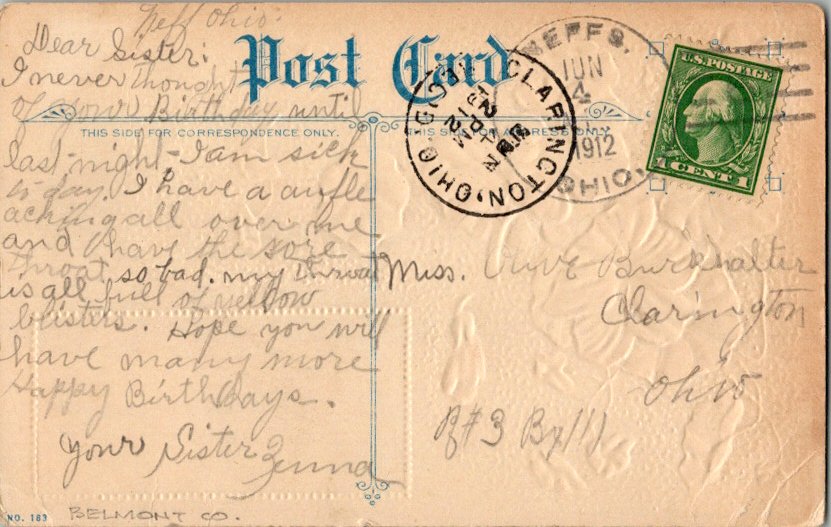 Neff Ohio.
Dear Sister:
I never thought
of your Birthday until
last night - I am sick
to day. I have a aufle
aching all over me
and I have the sore
throat so bad. my throat
is all full of yellow
blisters. Hope you will
have many more
Happy Birthdays.
Your Sister
Post Card
THIS SIDE FOR CORRESPONDENCE ONLY.
THIS SIDE FOR ADDRESS ONLY.
CLARINGTON, OHIO
REC'D.
NEFFS,
JUN
4
1912
OHIO.
U.S. POSTAGE
1 CENT 1
Miss. Olive Burkhalter
Clarington
Ohio
R#3 Bx111
NO. 183
BELMONT CO.